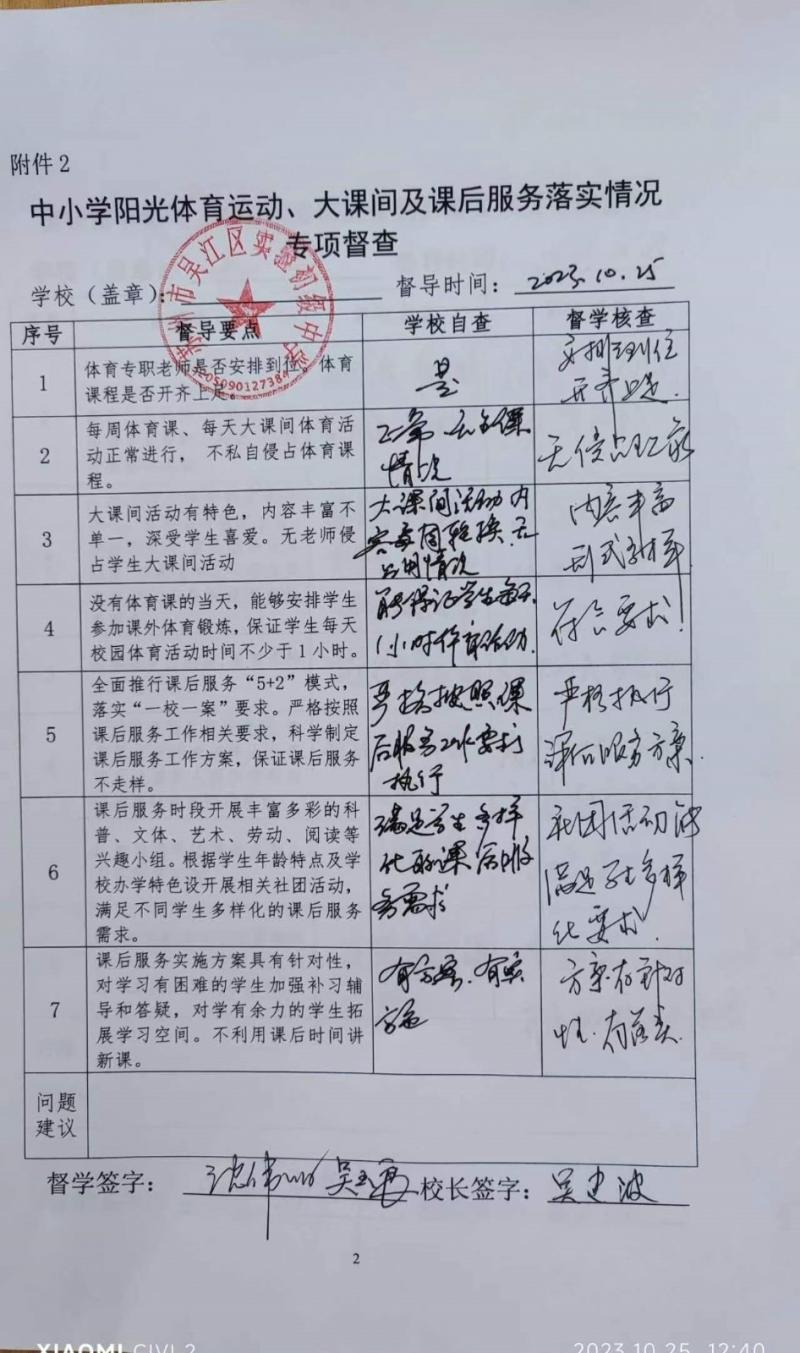 附件2
中小学阳光体育运动、大课间及课后服务落实情况
专项督查
苏州市吴江区实验初级中学
学校（盖章）： 督导时间： 2023.10.25
序号 督导要点 学校自查 督学核查
1
体育专职老师是否安排到位。体育
课程是否开齐上足。
是
安排到位
开齐上足.
2
每周体育课、每天大课间体育活
动正常进行， 不私自侵占体育课
程。
正常 无占课
情况
无侵占现象
3
大课间活动有特色，内容丰富不
单一，深受学生喜爱。无老师侵
占学生大课间活动
大课间活动内
容每周轮换,无
占用情况
内容丰富
形式多样
4
没有体育课的当天，能够安排学生
参加课外体育锻炼，保证学生每天
校园体育活动时间不少于1小时。
能保证学生每天
1小时体育活动.
符合要求!
5
全面推行课后服务“5+2”模式，
落实“一校一案”要求。严格按照
课后服务工作相关要求，科学制定
课后服务工作方案，保证课后服务
不走样。
严格按照课
后服务工作要求
执行
严格执行
课后服务方案.
6
课后服务时段开展丰富多彩的科
普、文体、艺术、劳动、阅读等
兴趣小组。根据学生年龄特点及学
校办学特色设开展相关社团活动，
满足不同学生多样化的课后服务
需求。
满足学生多样
化的课后服
务需求
社团活动能
满足学生多样
化要求.
7
课后服务实施方案具有针对性，
对学习有困难的学生加强补习辅
导和答疑，对学有余力的学生拓
展学习空间。不利用课后时间讲
新课。
有方案.有实
施
方案有针对
性.有落实.
问题
建议
督学签字： 校长签字： 吴建波
2
XIAOMI CIVI 2
2023.10.25 12:40